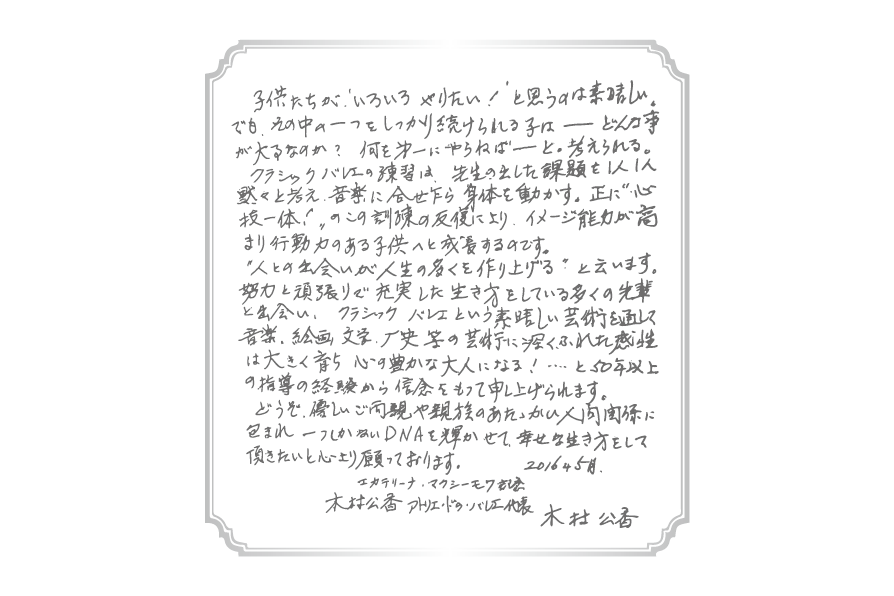 子供たちが、"いろいろ やりたい！"と思うのは素晴しい。
でも、その中の一つをしっかり続けられる子は ── どんな事
が大事なのか？ 何を第一にやらねば ── と。考えられる。
クラシックバレエの練習は、先生の出した課題を1人1人
黙々と考え、音楽に合せ乍ら 身体を動かす。正に"心
技一体！"のこの訓練の反復により、イメージ能力が高
まり行動力のある子供へと成長するのです。
"人との出会いが人生の多くを作り上げる"と云います。
努力と頑張りで 充実した生き方をしている多くの先輩
と出会い、クラシック バレエという素晴しい芸術を通して
音楽、絵画、文学、歴史 等の芸術に深くふれた感性
は大きく育ち 心の豊かな大人になる！････と50年以上
の指導の経験から 信念をもって申し上げられます。
どうぞ、優しいご両親や親族のあたゝかい人間関係に
包まれ 一つしかないDNAを輝かせて、幸せな生き方をして
頂きたいと心より願っております。 2016年5月.
エカテリーナ・マクシーモワ
木村公香 アトリエ・ドゥ・バレエ代表 木村 公香